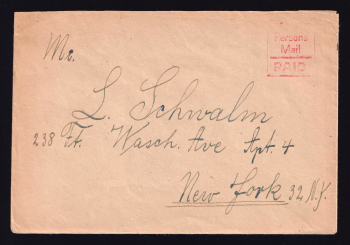 Persons
Mail
PAID
Mr.
L. Schwalm
238 Ft. Wasch. Ave Apt. 4
New York 32 N.Y.